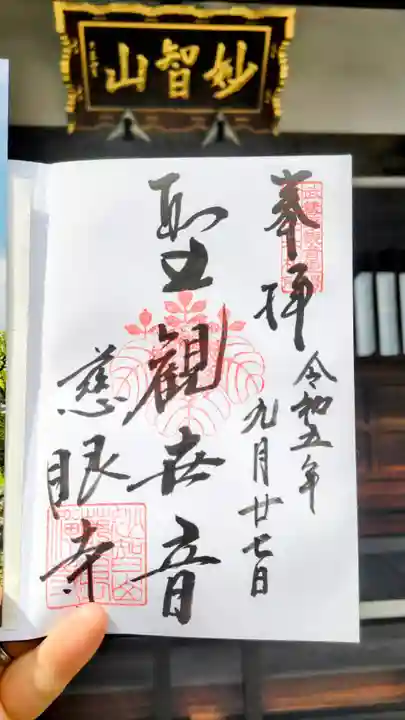 山智妙
奉拝
令和五年
九月廿七日
聖観世音
慈眼寺